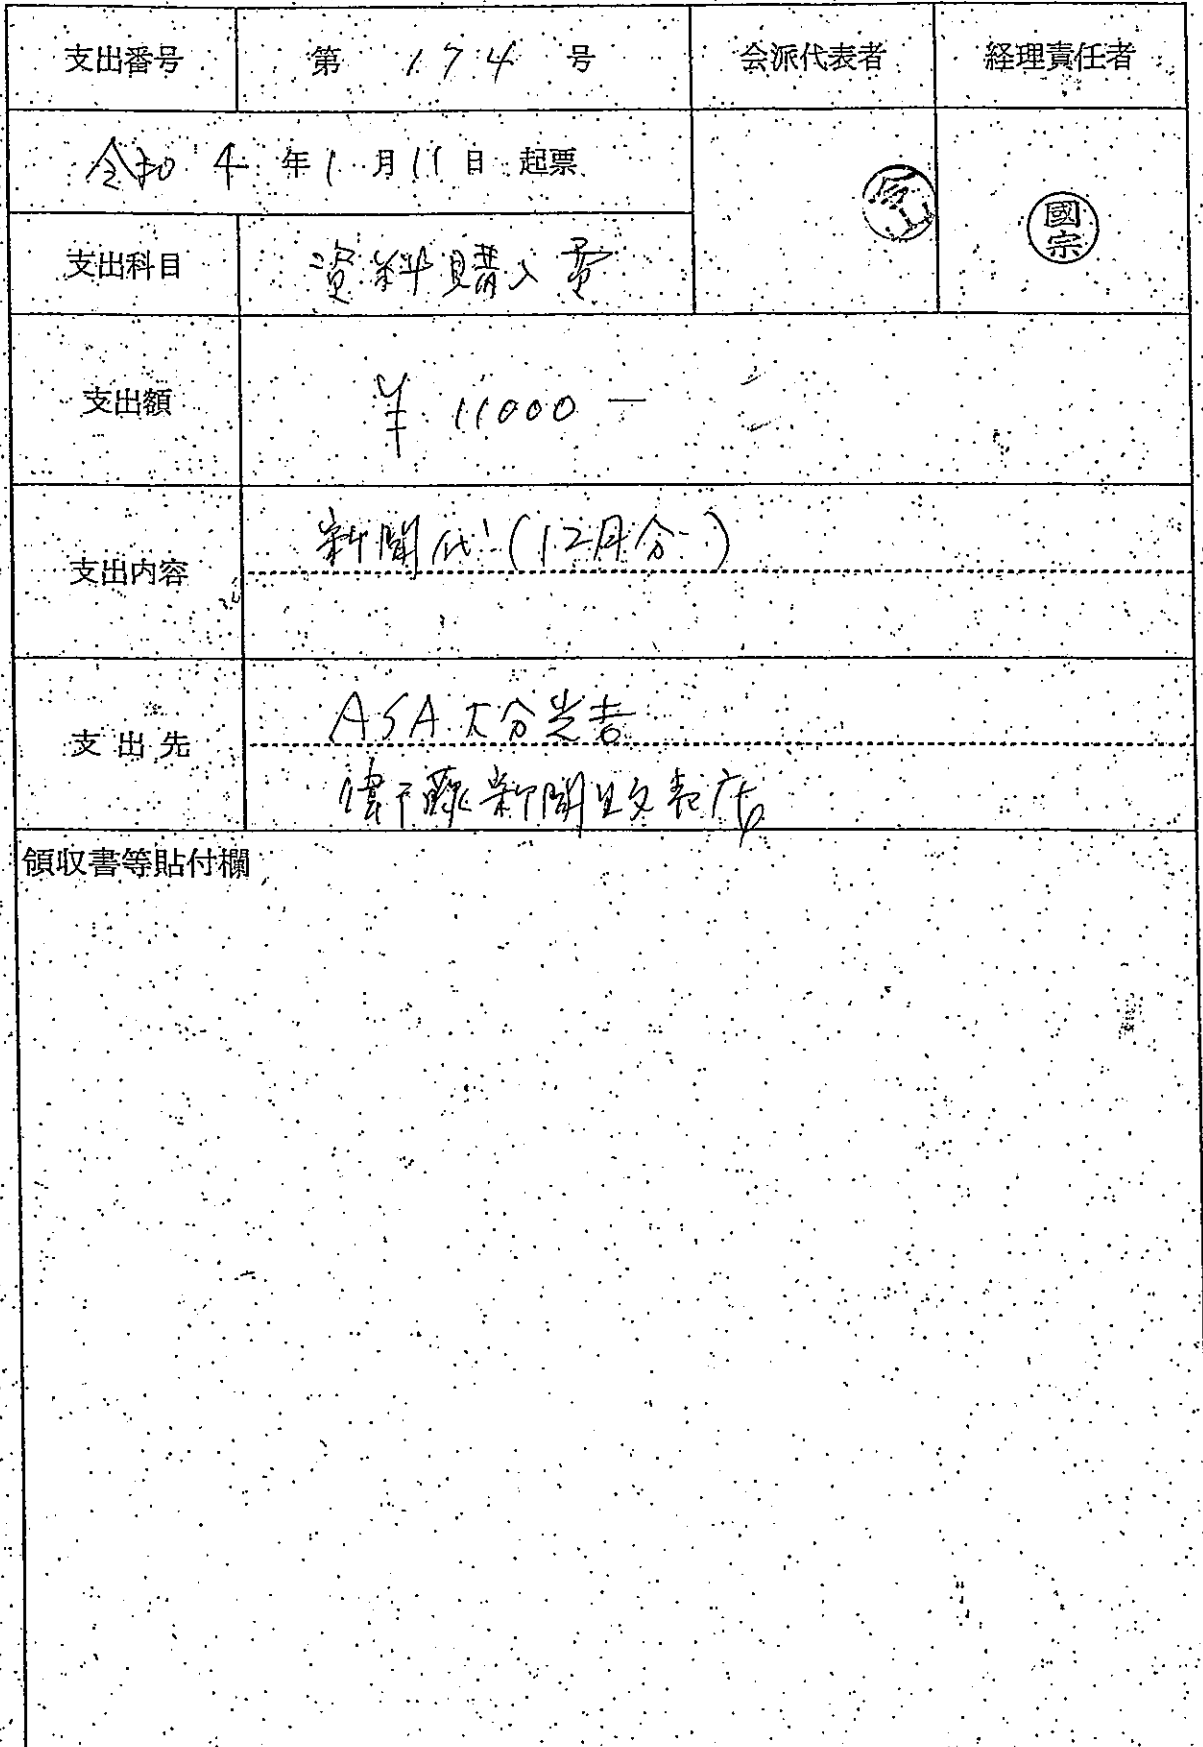 支出番号 第 174 号 会派代表者 経理責任者
令和 4 年 1 月 11 日 起票
國宗
支出科目 資料購入費
支出額 ¥ 11000 —
支出内容 新聞代 (12月分)
支出先 ASA 大分光吉
新聞 店
領収書等貼付欄